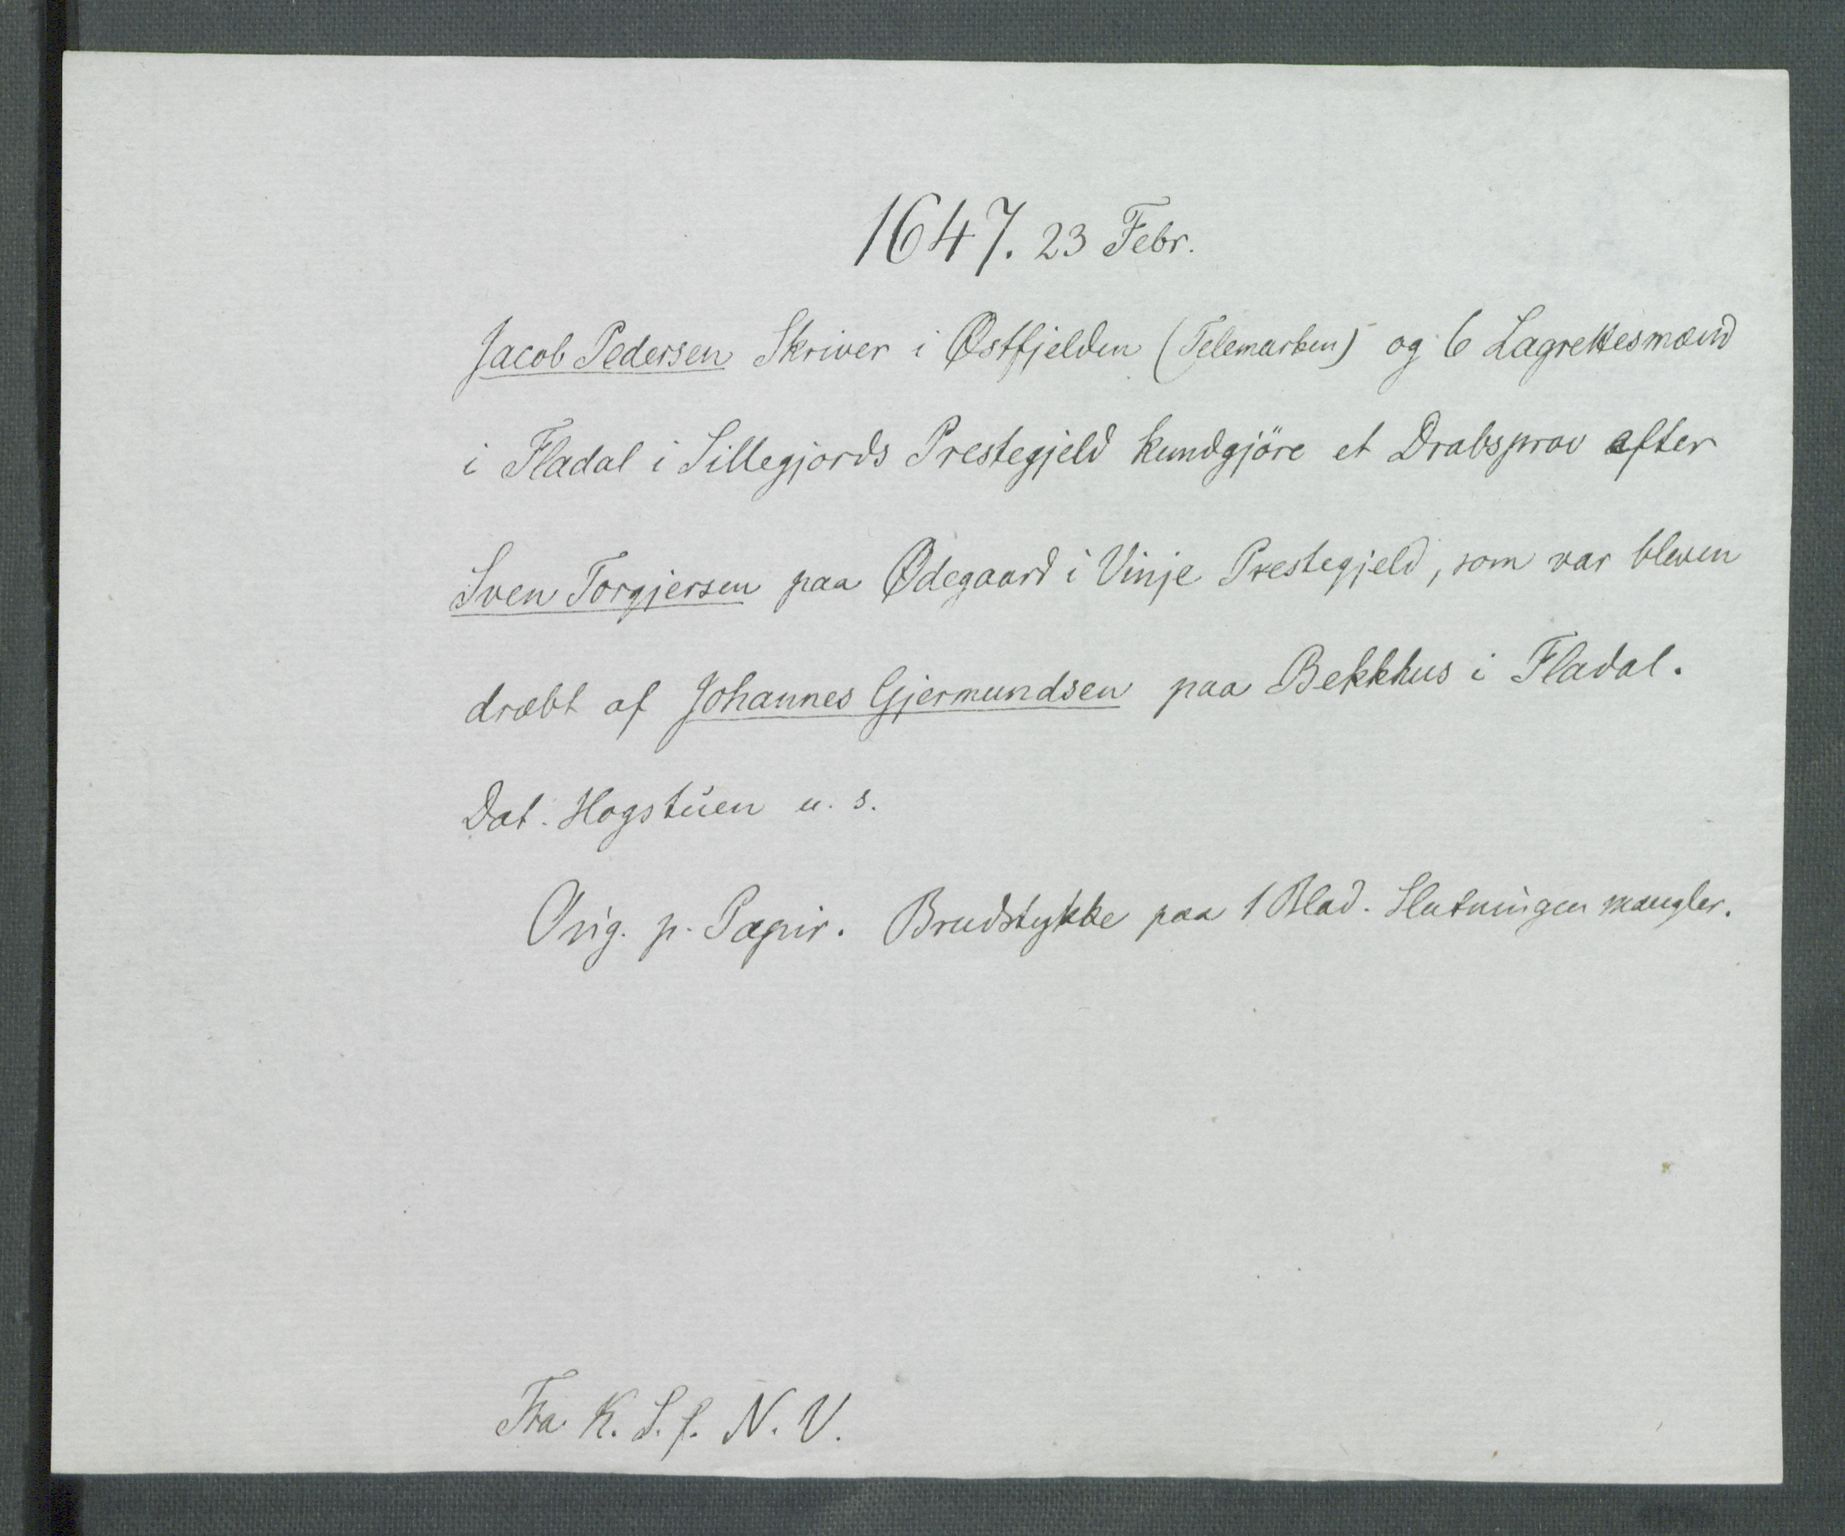 1647. 23 Febr.
Jacob Pedersen Skriver i Østfjelden (Telemarken) og 6 Lagrettesmænd
i Fladal i Sillegjords Prestegjeld kundgjöre et Drabsprov efter
Sven Torgjersen paa Ødegaard i Vinje Prestegjeld, som var bleven
dræbt af Johannes Gjermundsen paa Bekkhus i Fladal.
Dat. Hogstuen u. s.
Orig. p. Papir. Brudstykke paa 1 Blad. Slutningen mangler.
Fra K. S. f. N. V.